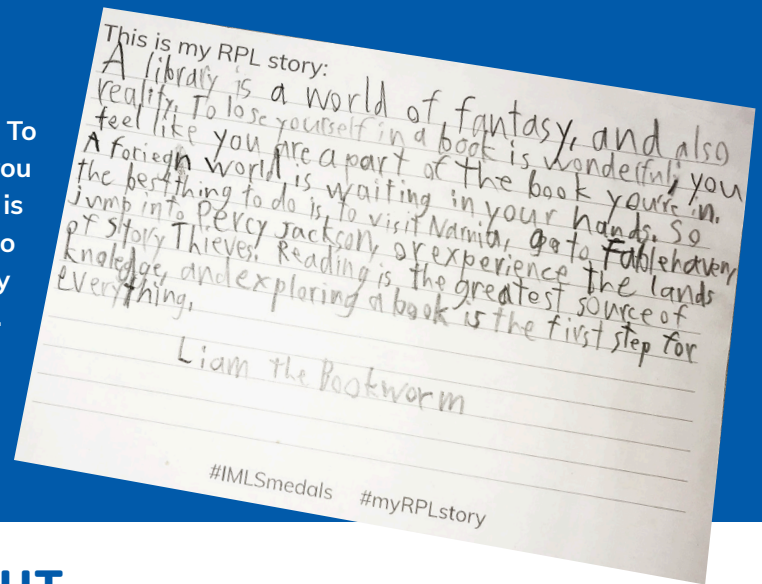 This is my RPL story:
A library is a world of fantasy, and also
reality. To lose yourself in a book is wonderful; you
feel like you are a part of the book you're in.
A foriegn world is waiting in your hands. So
the best thing to do is to visit Narnia, go to Fablehaven,
jump into Percy Jackson, or experience the lands
of Story Thieves. Reading is the greatest source of
knoledge, and exploring a book is the first step for
everything.
Liam the Bookworm
#IMLSmedals #myRPLstory
To
ou
is
o
y